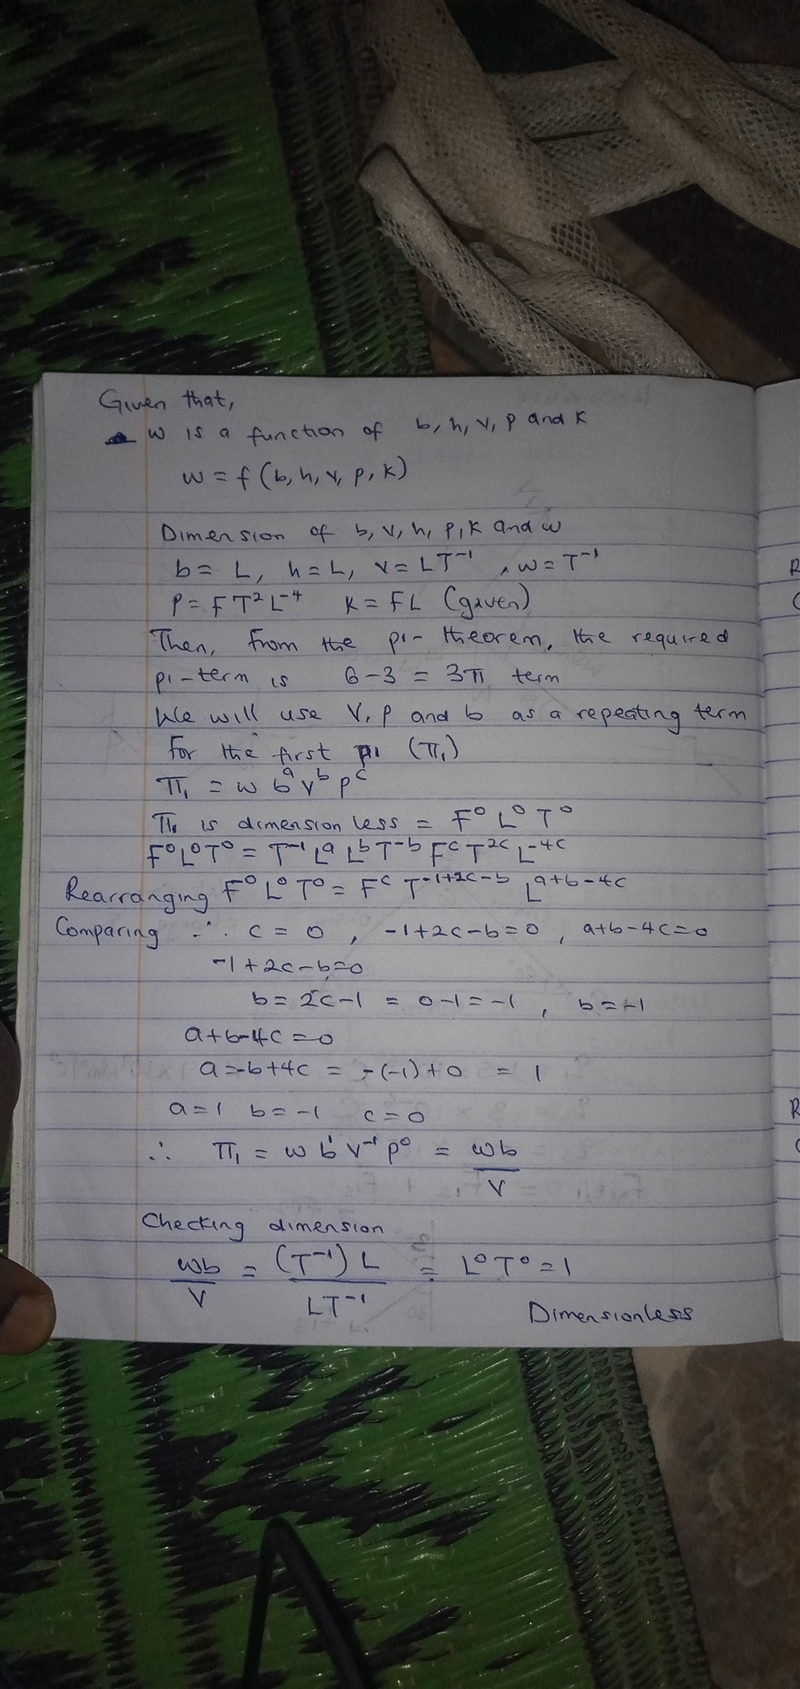 Given that,
w is a function of b, h, v, p and k
w = f (b, h, v, p, k)
Dimension of b, v, h, p, k and w
b = L, h = L, v = LT⁻¹, w = T⁻¹
p = FT²L⁻⁴ k = FL (given)
Then, from the pi-theorem, the required
pi-term is 6-3 = 3π term
We will use v, p and b as a repeating term
for the first pi (π₁)
π₁ = w bᵃ vᵇ pᶜ
π₁ is dimensionless = F⁰ L⁰ T⁰
F⁰L⁰T⁰ = T⁻¹ Lᵃ Lᵇ T⁻ᵇ Fᶜ T²ᶜ L⁻⁴ᶜ
Rearranging F⁰ L⁰ T⁰ = Fᶜ T⁻¹⁺²ᶜ⁻ᵇ Lᵃ⁺ᵇ⁻⁴ᶜ
Comparing ∴ c = 0, -1+2c-b=0, a+b-4c=0
-1+2c-b=0
b = 2c-1 = 0-1=-1, b=-1
a+b-4c=0
a=-b+4c = -(-1)+0 = 1
a=1 b=-1 c=0
∴ π₁ = w b¹ v⁻¹ p⁰ = wb/v
Checking dimension
wb/v = (T⁻¹) L / LT⁻¹ = L⁰T⁰ = 1
Dimensionless